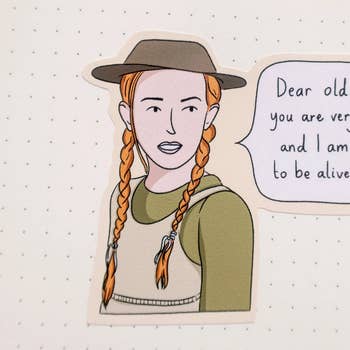 Dear old
you are very
and I am
to be alive